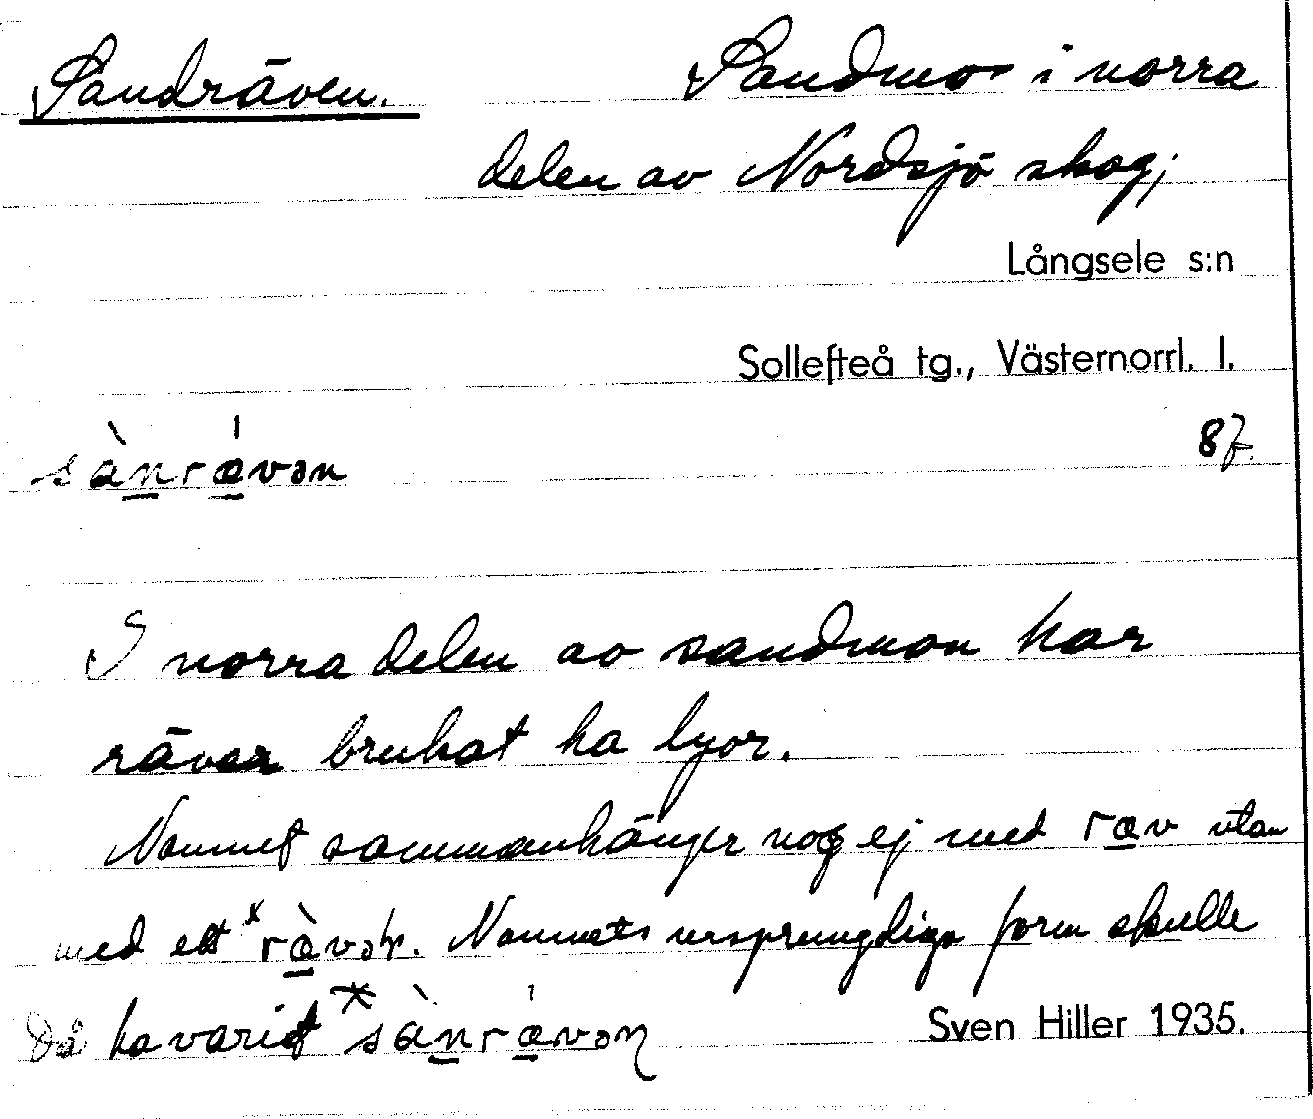 Sandräven. Sandmo i norra
delen av Nordsjö skog;
Långsele s:n
Sollefteå tg., Västernorrl. l.
87.
sànrǽvən
I norra delen av sandmon har
rävar brukat ha lyor.
Namnet sammanhänger nog ej med ræv utan
med ett *rævər. Namnets ursprungliga form skulle
då ha varit *sànrævəɳ
Sven Hiller 1935.